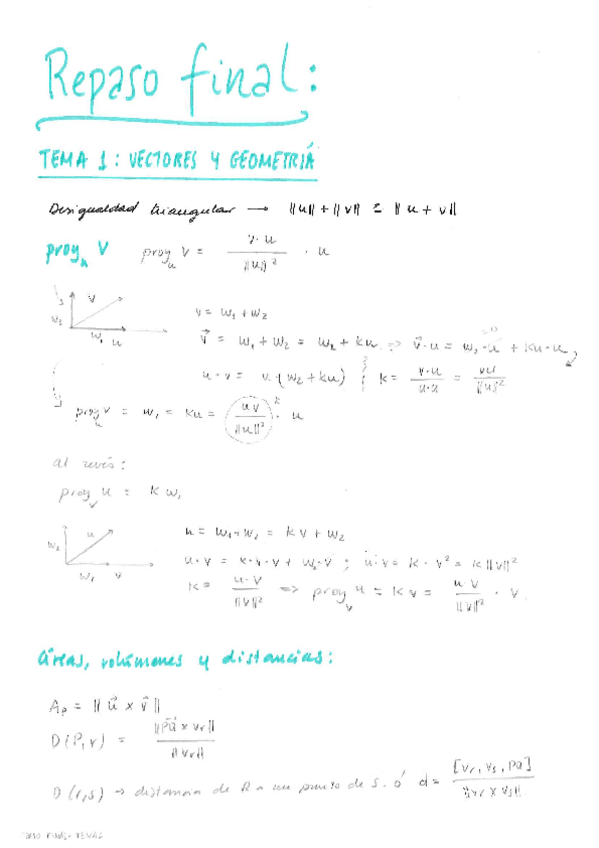 Repaso final:
TEMA 1: VECTORES Y GEOMETRIÁ
Desigualdad triangular → ||u|| + ||v|| ≥ ||u + v||
proy_u V proy_u V = v·u / ||u||² · u
v = w₁ + w₂
v⃗ = w₁ + w₂ = w₂ + ku ⇒ v⃗·u = w₂·u + ku·u
u·v = v·(w₂ + ku) k = v·u / u·u = vu / ||u||²
proy_u v = w₁ = ku = u v / ||u||² · u
al revés:
proy_v u = k w₁
u = w₁ + w₂ = k v + w₂
u·v = k·v·v + w₂·v ; u·v = k · v² = k ||v||²
k = u·v / ||v||² ⇒ proy_v u = k v = u·v / ||v||² · v
áreas, volúmenes y distancias:
Aₚ = || u⃗ x v⃗ ||
D(P,r) = ||PQ x vr|| / ||vr||
D(r,s) → distancia de R a un punto de S. ó d = [vr, vs, PQ] / ||vr x vs||